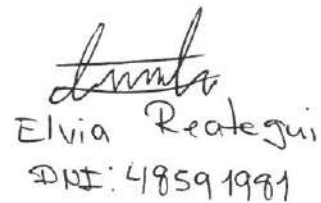 Elvia Reategui
DNI: 48591981